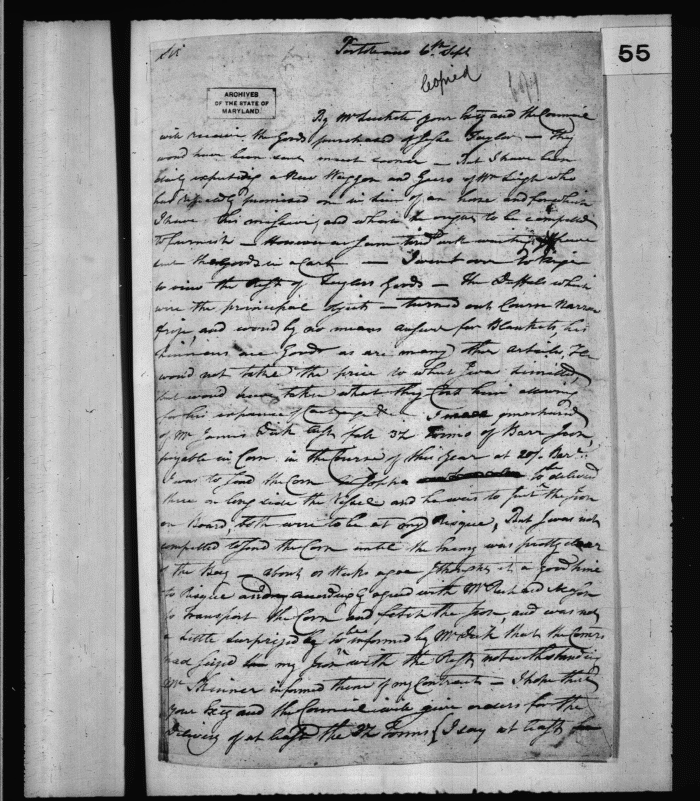 55
Sir Portobacco 6th Sept
Copied
ARCHIVES
OF THE STATE OF
MARYLAND
By Mr your Excy and the Council
will receive the Goods purchased of Taylor — They
woud have been sent much sooner — But I have been
expecting a New Waggon and Geers of Mr who
had promised one in lieu of an horse and for which
I have his and whom he ought to be compelled
to furnish — However as I am tired with waiting have
sent the Goods in a Cart — I went over to
to view the Rest of Taylors Goods — The Duffels which
were the principal object — turned out Course Narrow
and woud by no means answer for Blankets, his
are Good as are many other articles, He
would not take the price to which I was limitted
but woud have taken what they Cost him allowing
for his expences of Cartage &c — I made a purchase
of Mr James Dick last fall 32 Tonns of Barr Iron,
payable in Corn in the Course of this Year at 20/ Barl.
I was to send the Corn to be delivered
there on long side the Vessel and he was to put the Iron
on Board, both were to be at my Risque, But I was not
compelled to send the Corn until the Enemy was pretty clear
of the Bay — about Weeks agoe I thought it a good time
to Risque and accordingly agreed with Mr
to Transport the Corn and fetch the Iron, and was not
a little surprized by to be informed by Mr Dick that the Comrs
had seized on my Iron with the Rest notwithstanding
Mr Skinner informed them of my Contracts — I hope that
your Excy and the Council will give orders for the
Delivery of at least the 32 Tonns (I say at least for